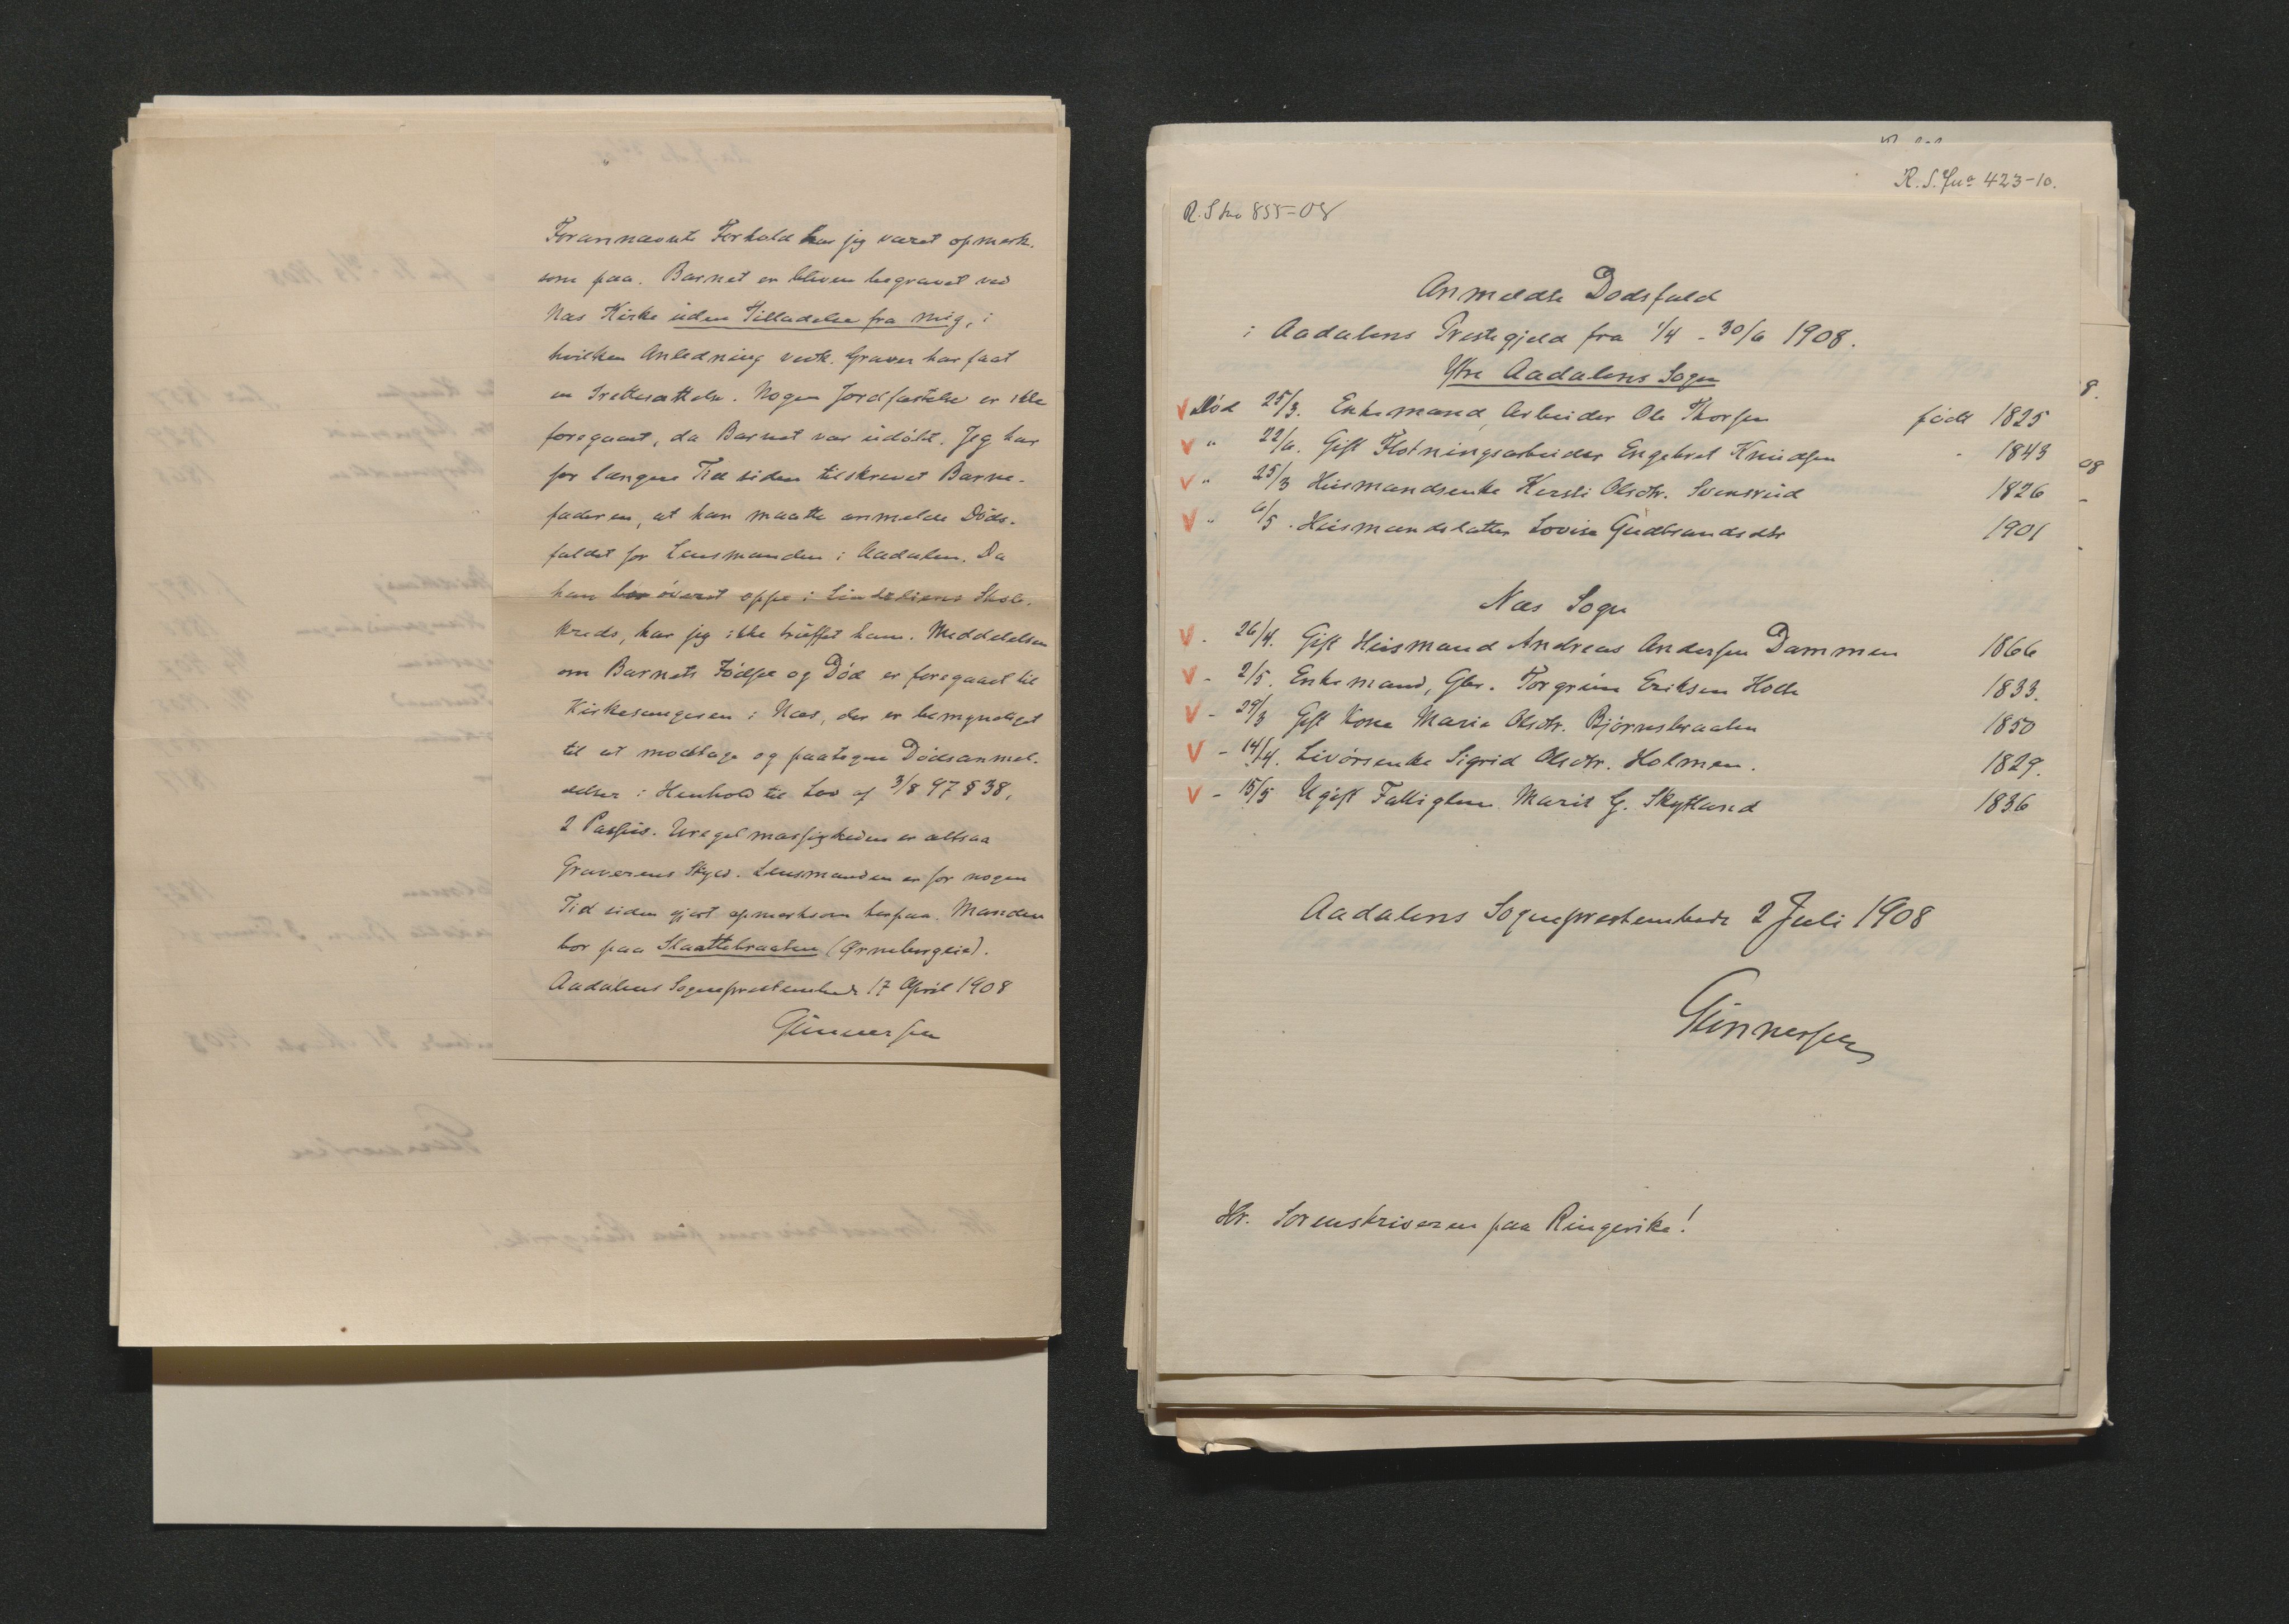 Forannævnte Forhold har jeg været opmærk-
som paa. Barnet er bleven begravet ved
Næs Kirke uden Tilladelse fra mig, i
hvilken Anledning vedk. Graver har faat
en Irettesættelse. Nogen Jordfæstelse er ikke
foregaaet, da Barnet var udöbt. Jeg har
for længere Tid siden tilskrevet Barne-
faderen, at han maatte anmelde Döds-
faldet for Lensmanden i Aadalen. Da
han bor överst oppe i Lindeliens Skole-
kreds, har jeg ikke truffet ham. Meddelelsen
om Barnets Födsel og Död er foregaaet til
Kirkesangeren i Næs, der er bemyndiget
til at modtage og paategne Dödsanmel-
delser i Henhold til Lov af 3/8 97 § 38,
2 Passus. Uregelmæssigheden er altsaa
Graverens Skyld. Lensmanden er for nogen
Tid siden gjort opmerksom herpaa. Manden
bor paa Slaattebraaten (Ørnebergeie).
Aadalens Sogneprestembede 17 April 1908
Gunnersen
R. S. Jno 423-10.
R. S no 855-08
Anmeldte Dødsfald
i Aadalens Prestegjeld fra 1/4 - 30/6 1908.
Ytre Aadalens Sogn
V Död 25/3. Enkemand, Arbeider Ole Thorsen född 1825
V " 22/6. Gift Flötningsarbeider Engebret Knudsen - 1843
V " 25/3 Husmandsenke Kersti Olsdtr. Svensrud 1826
V " 6/5. Husmandsdatter Lovise Gudbrandsdtr 1901
Næs Sogn
V - 26/4. Gift Husmand Andreas Andersen Dammen 1866
V - 2/5. Enkemand, Gbr. Torgrim Eriksen Holte 1833.
V - 29/3 Gift Kone Maria Olsdtr. Björnebraaten 1850
V - 14/4. Livörsenke Sigrid Olsdtr. Holmen. 1829.
V - 15/5 Ugift Fattiglem Marit G. Skytland 1836
Aadalens Sogneprestembede 2 Juli 1908
Gunnersen
Hr. Sorenskriveren paa Ringerike!